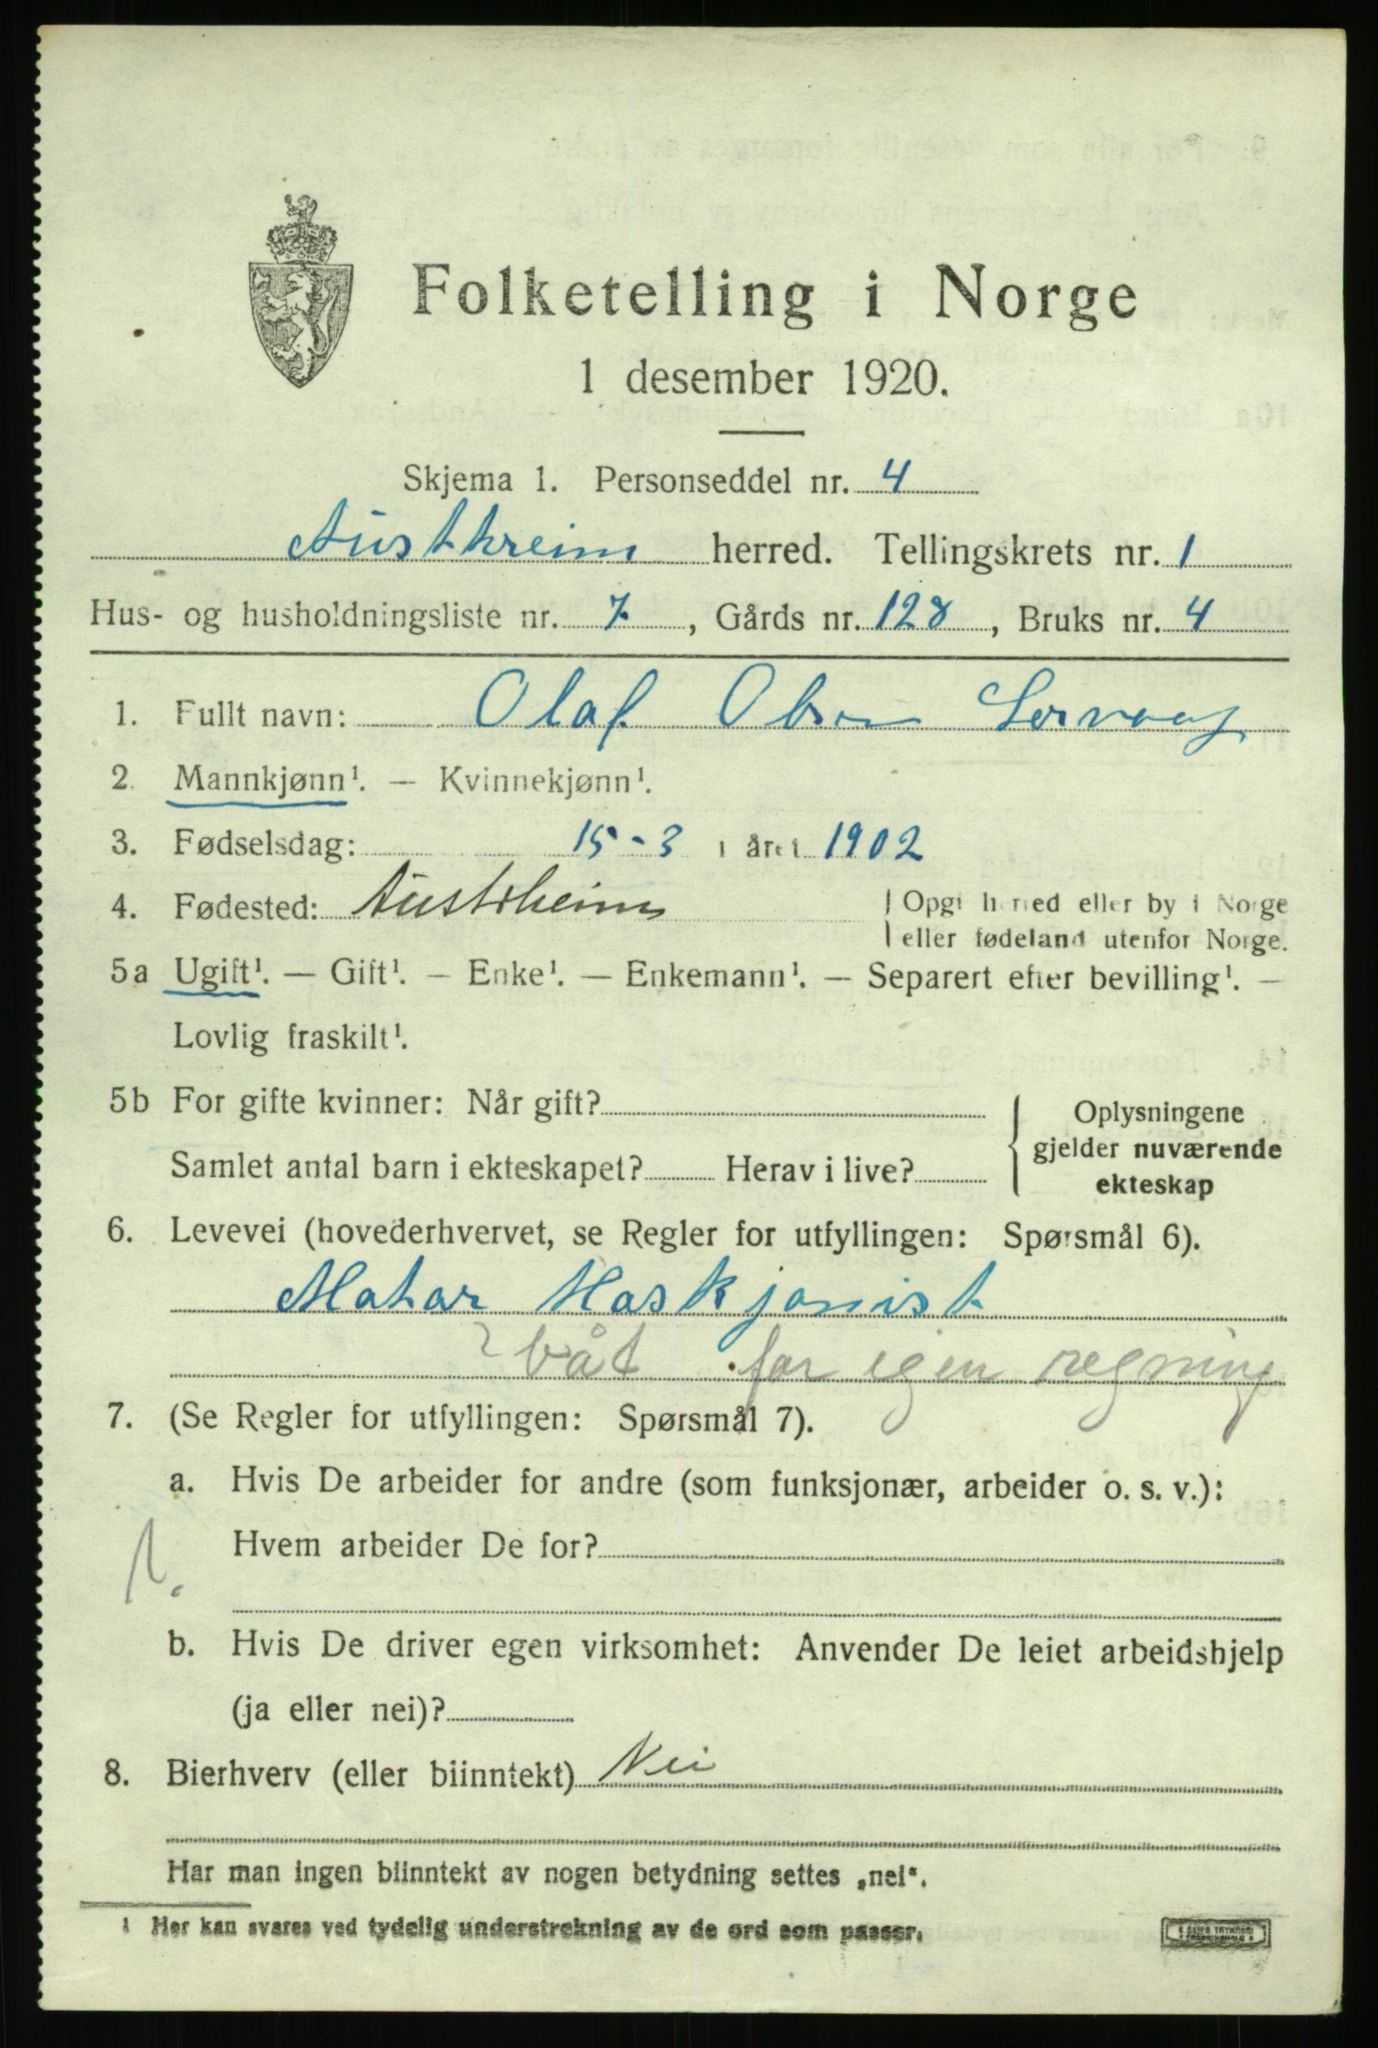 Folketelling i Norge
1 desember 1920.
Skjema 1. Personseddel nr. 4
Austhreim herred. Tellingskrets nr. 1
Hus- og husholdningsliste nr. 7 , Gårds nr. 128 , Bruks nr. 4
1. Fullt navn: Olaf Olsen
2. Mannkjønn¹. — Kvinnekjønn¹.
3. Fødselsdag: 15-3 i året 1902
4. Fødested: Austrheim { Opgi herred eller by i Norge
eller fødeland utenfor Norge.
5a Ugift¹. — Gift¹. — Enke¹. — Enkemann¹. — Separert efter bevilling¹. —
Lovlig fraskilt¹.
5b For gifte kvinner: Når gift?
Samlet antal barn i ekteskapet? Herav i live?
{ Oplysningene
gjelder nuværende
ekteskap
6. Levevei (hovederhvervet, se Regler for utfyllingen: Spørsmål 6).
Motor Maskjonist
båt for egen regning
7. (Se Regler for utfyllingen: Spørsmål 7).
a. Hvis De arbeider for andre (som funksjonær, arbeider o. s. v.):
Hvem arbeider De for?
b. Hvis De driver egen virksomhet: Anvender De leiet arbeidshjelp
(ja eller nei)?
8. Bierhverv (eller biinntekt) Nei
Har man ingen biinntekt av nogen betydning settes „nei“.
1 Her kan svares ved tydelig understrekning av de ord som passer.